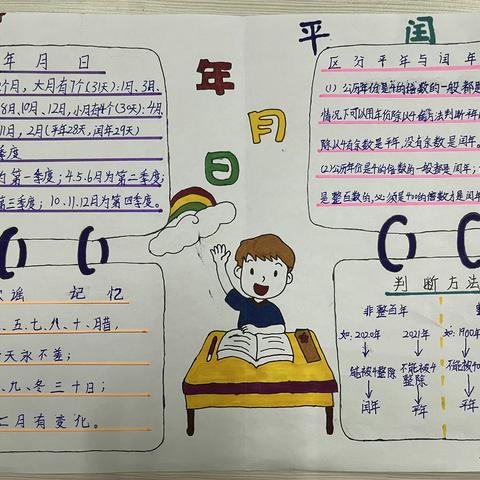 年 月 日
平 闰
年 月 日
个月，大月有7个(31天)：1月、3月、
8月、10月、12月，小月有4个(30天)：4月、
11月，2月(平年28天，闰年29天)
季度
为第一季度；4.5.6月为第二季度；
第三季度；10.11.12月为第四季度。
区分平年与闰年
(1)公历年份是4的倍数的一般都是
情况下可以用年份除以4的方法判断平年
除以4有余数是平年，没有余数是闰年。
(2)公历年份是4的倍数的一般都是闰年；
是整百数的，必须是400的倍数才是闰年
歌谣 记忆
、五、七、八、十、腊，
天永不差；
、九、冬三十日；
二月有变化。
判断方法
非整百年 整
如：2020年 2021年 如：1900年
能被4整除 不能被4整除 不能被40
闰年 平年 平年